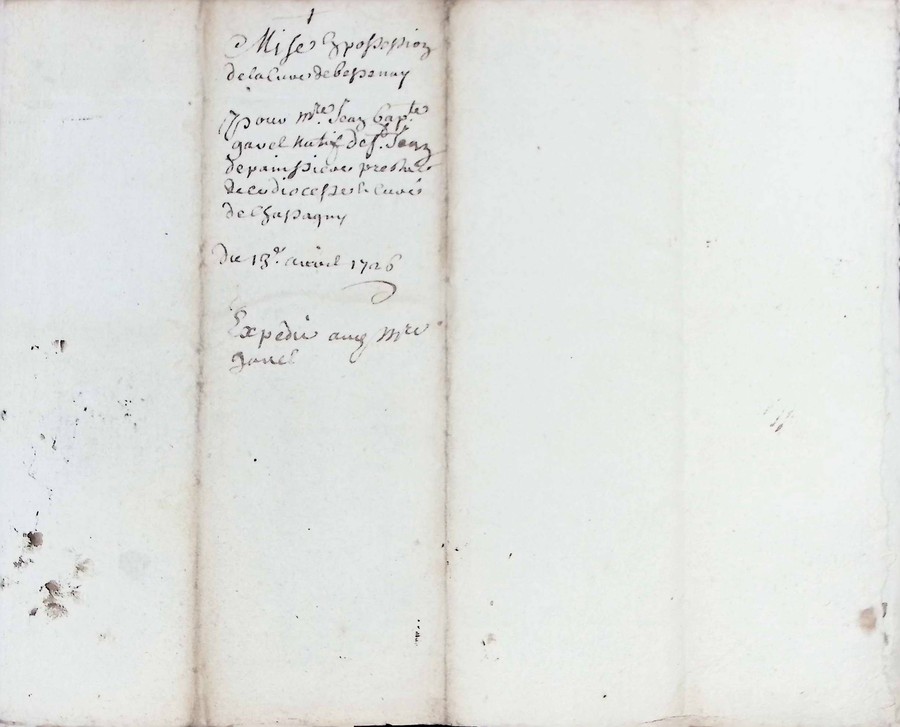 Mise En possession
de la Cure de bessenay
Pour Mre Jean Bapte
gavel Natif de St. Jean
de panissiere prestre
de ce diocese & Curé
de Chassagny
Du 13e. avril 1726
Expédié aud Mre
gavel